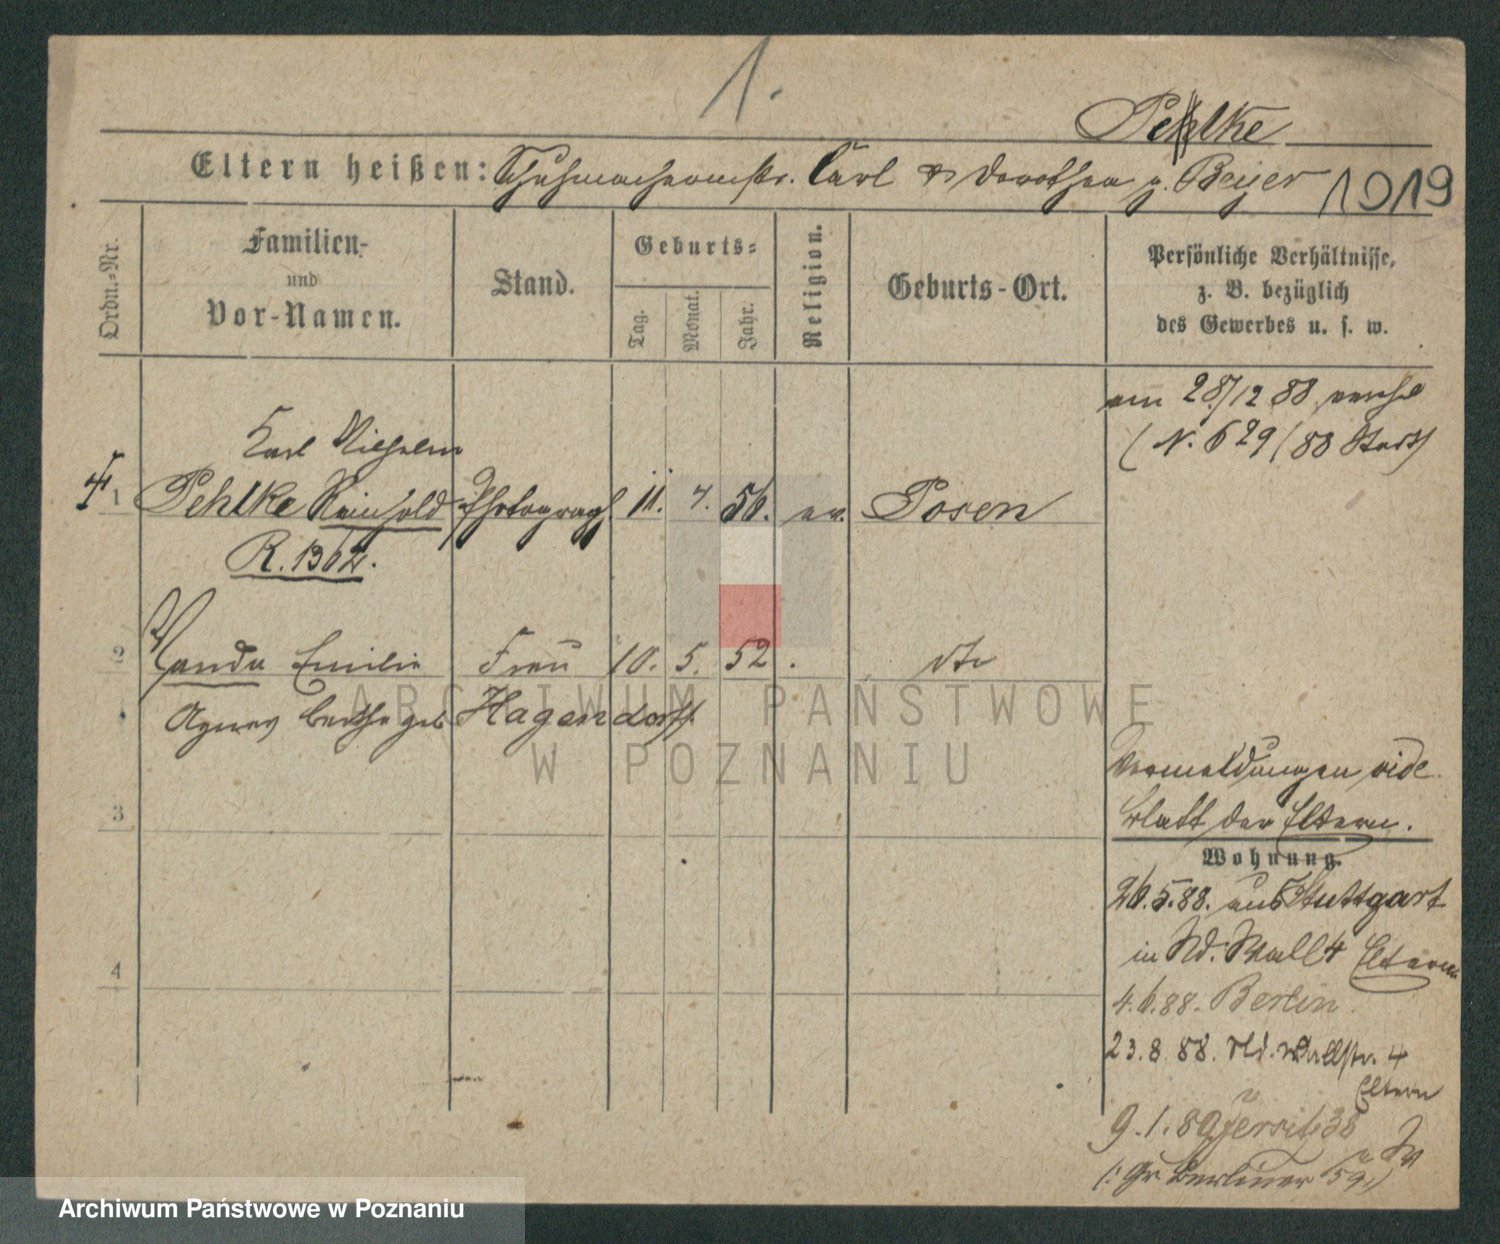 1.
Pehlke
Eltern heißen: Schuhmachermstr. Carl & Dorothea g. Beyer 1919
Ordn.-Nr.
Familien-
und
Vor-Namen.
Stand.
Geburts-
Tag.
Monat.
Jahr.
Religion.
Geburts-Ort.
Persönliche Verhältnisse,
z. B. bezüglich
des Gewerbes u. s. w.
am 28/12 88
(N. 629/88 Stdt)
Karl Wilhelm
1 Pehlke Reinhold Photograph 11. 7. 56. ev. Posen
R. 1362.
2 Wanda Emilie Frau 10. 5. 52 dto
Agnes Bertha geb Hagendorff.
Vermeldungen vide
Blatt der Eltern.
3
Wohnung.
26.5.88. aus Stuttgart
in Nd. Wall 4 Eltern
4
4.6.88. Berlin
23.8 88. Nd. Wallstr. 4
Eltern
9.1.89 Jersitz 38
(: Gr Berliner 59 :)
ARCHIWUM PAŃSTWOWE
W POZNANIU
Archiwum Państwowe w Poznaniu